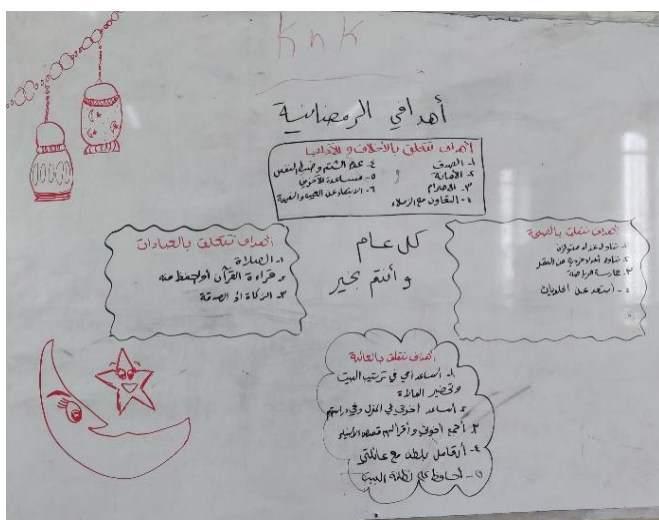 KnK
أهدافي الرمضانية
أهداف تتعلق بالأخلاق و
١- الصدق
٢- الأمانة
٣- الاحترام
٤- التعاون مع الزملاء
٤- عدم الشتم و ضبط النفس
٥- مساعدة الآخرين
٦- الابتعاد عن الغيبة والنميمة
كل عام
و أنتم بخير
أهداف تتعلق بالعبادات
١- الصلاة
٢- قراءة القرآن أو الحفظ منه
٣- الزكاة أو الصدقة
أهداف تتعلق بالصحة
١- تناول غذاء متوازن
٢- تناول
٣- ممارسة الرياضة
٤- أبتعد عن الحلويات
أهداف تتعلق بالعائلة
١- أساعد امي في ترتيب البيت
وتحضير المائدة
٢- أساعد أخوتي في المنزل وفي دراستهم
٣- أجمع أخوتي و أقرأ لهم قصص الأنبياء
٤- أتعامل بلطف مع عائلتي
٥- أحافظ على نظافة البيت